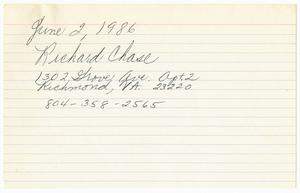 June 2, 1986
Richard Chase
1302 Grove Ave. Apt 2
Richmond, VA 23220
804-358-2565